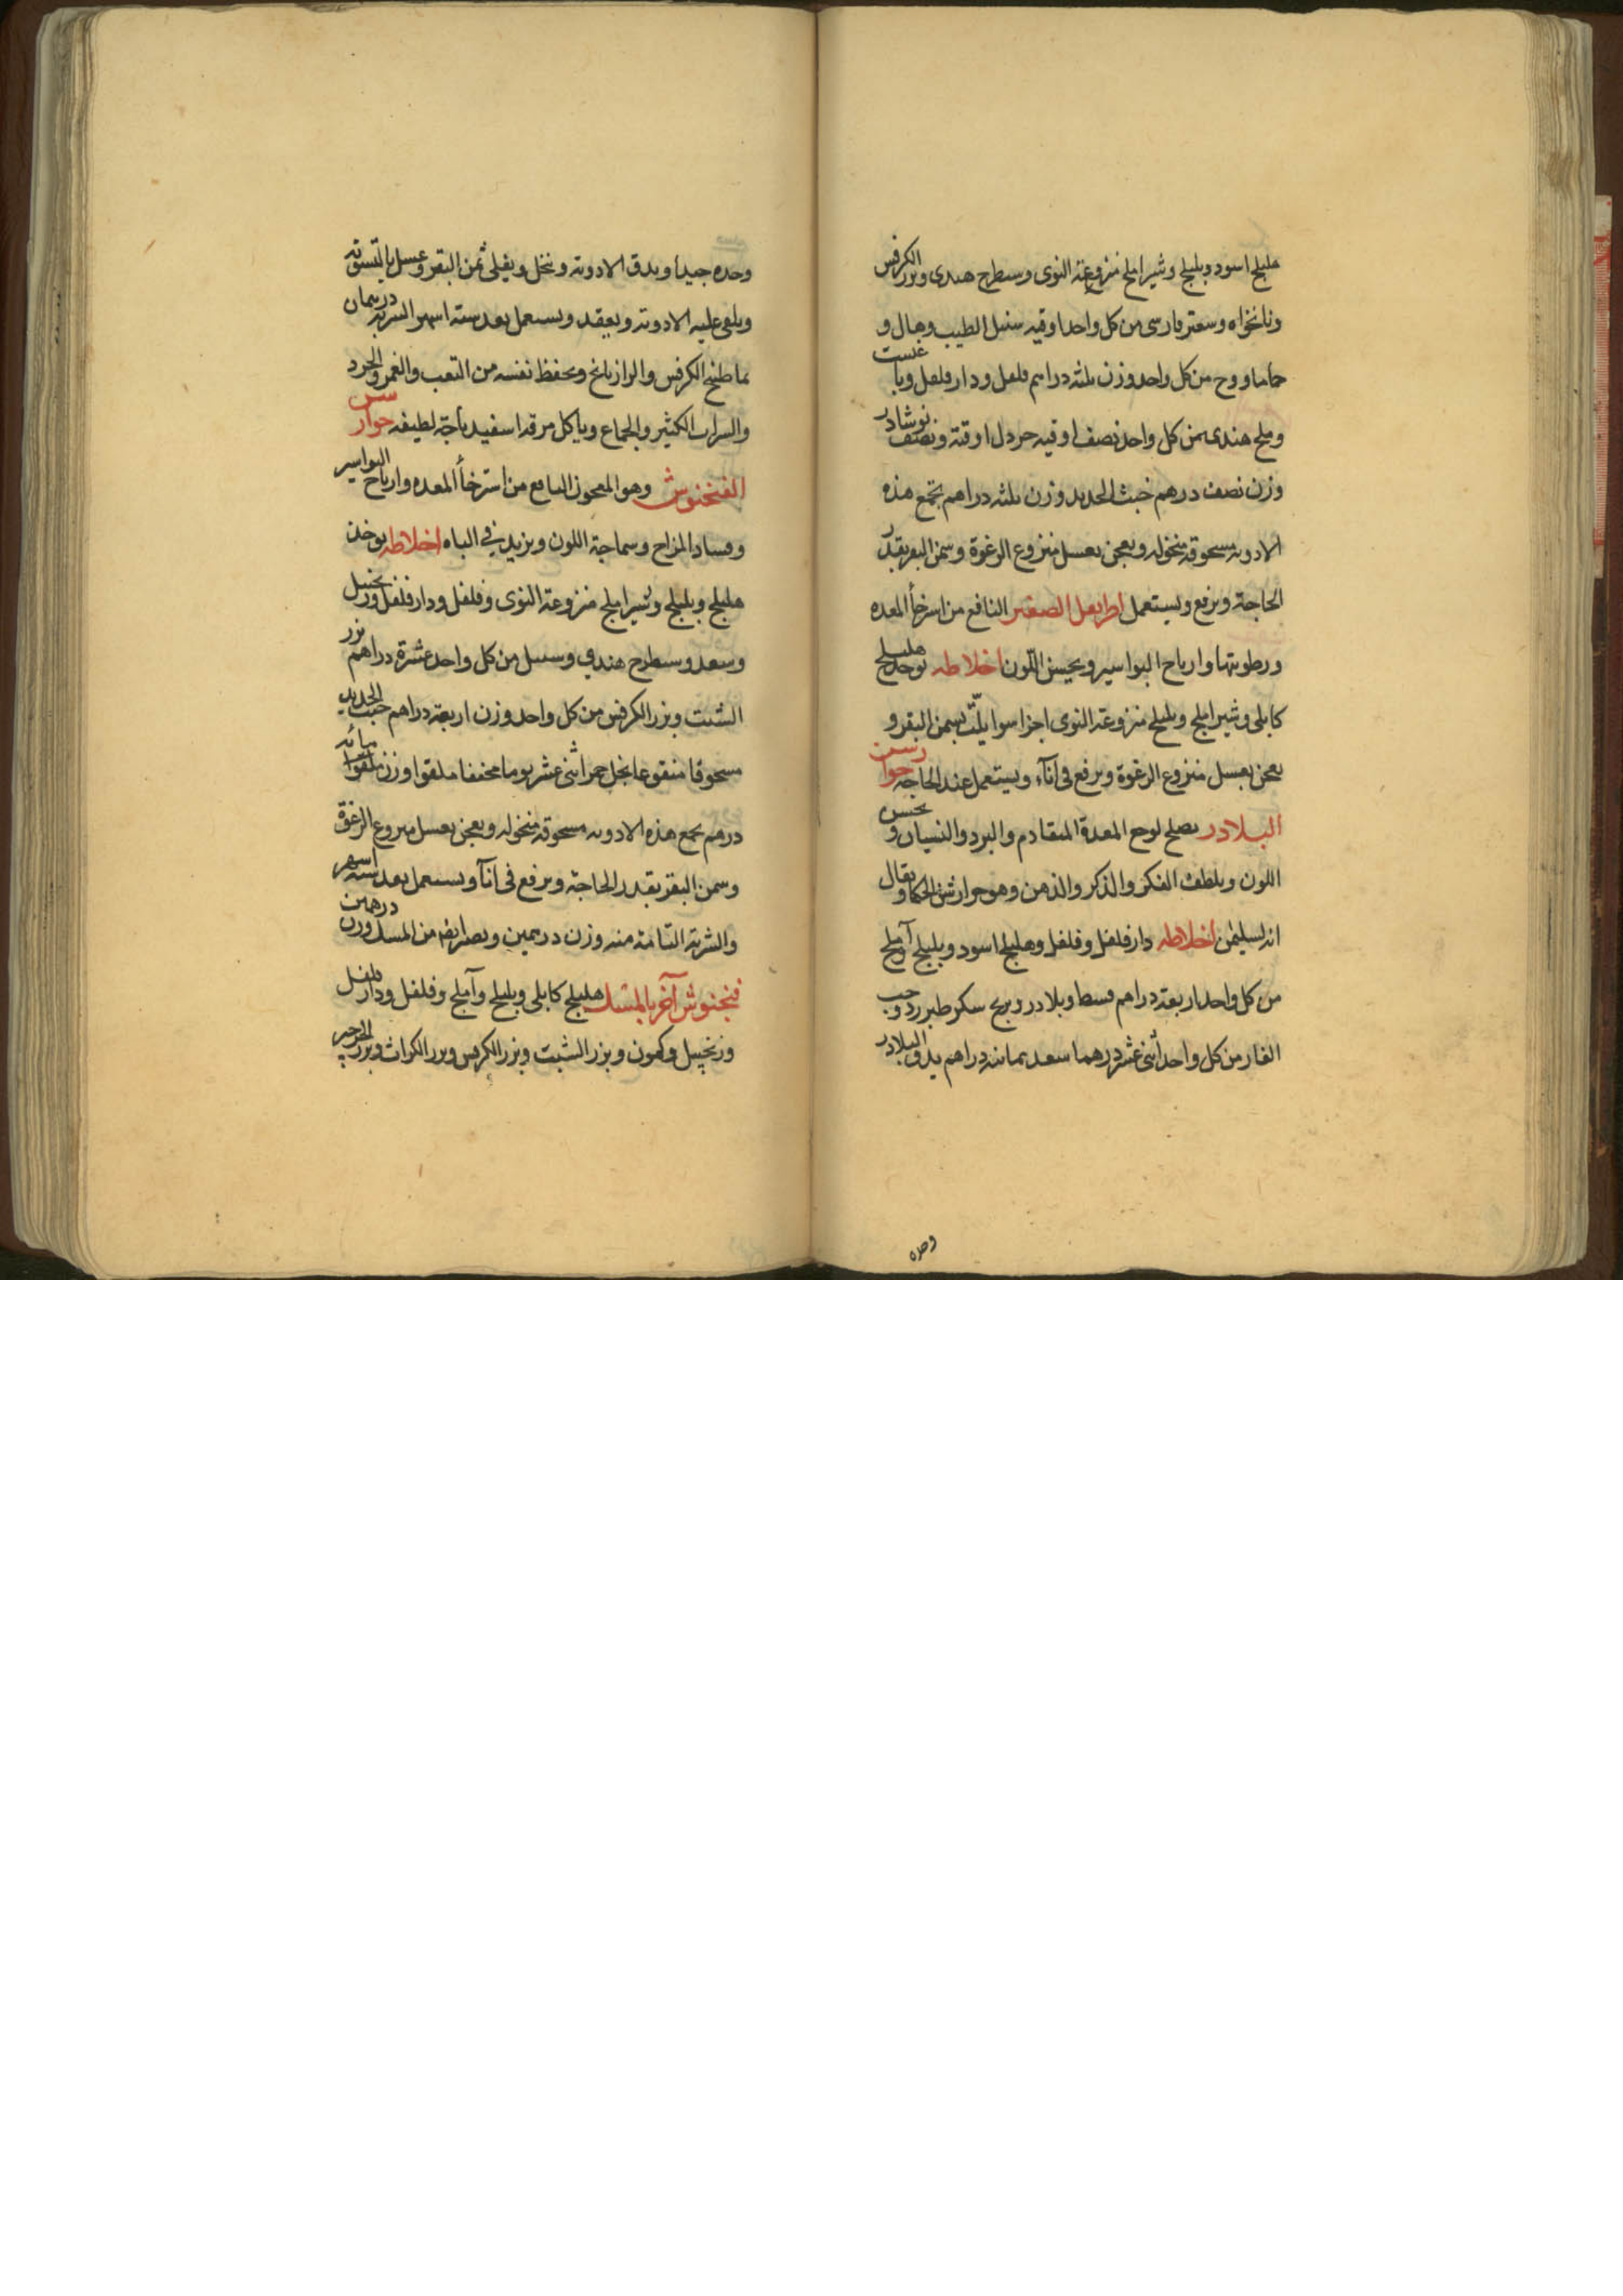 هليلج اسود وبليلج وشيراملج منزوعة النوى وسطرج هندى وبزر الكرفس
ونانخواه وسعتر فارسى من كل واحد اوقيه سنبل الطيب وهال و
حاما ووج من كل واحد وزن ثلثه دراهم فلفل ودارفلفل
وملح هندى من كل واحد نصف اوقيه خردل اوقية ونصف نوشادر
وزن نصف درهم خبث الحديد وزن ثلثه دراهم تجمع هذه
الادويه مسحوقه منخوله وتعجن بعسل منزوع الرغوة وسمن البقر بقدر
الحاجة ويرفع ويستعمل اطريفل الصغير النافع من استرخاء المعده
ورطوبتها وارياح البواسير ويحسن اللون اخلاطه يوخذ هليلج
كابلى وشيراملج وبليلج منزوعة النوى اجزا سوا يلتّ بسمن البقر و
يعجن بعسل منزوع الرغوة ويرفع فى انآء ويستعمل عند الحاجه جوارسن
البلادر يصلح لوجع المعدة المتقادم والبرد والنسيان و يحسن
اللون ويلطف الفكر والذكر والذهن وهو جوارشن الحكما ويقال
انه لسليمن اخلاطه دارفلفل وفلفل وهليلج اسود وبليلج وآملج
من كل واحد اربعة دراهم قسط وبلادر وبرنج سكر طبرزد وحب
الغار من كل واحد اثنى عشر درهما سعد ثمانيه دراهم يدق البلادر
وحده
وحده جيدا ويدق الادوية وينخل ويغلى سمن البقر وعسل بالتسوية
ويلقى عليه الادوية ويعقد ويستعمل بعد ستة اشهر الشربه درهمان
بما طبيخ الكرفس والرازيانج ويحفظ نفسه من التعب والغم والحرد
والشراب الكثير والجماع وياكل مرقه اسفيدباجة لطيفه جوارسن
الفنجنوش وهو المعجون النافع من استرخأ المعده وارياح البواسير
وفساد المزاج وسماجة اللون ويزيد فى الباه اخلاطه يوخذ
هليلج وبليلج وشيراملج منزوعة النوى وفلفل ودارفلفل وزنجبيل
وسعد وسطرج هندي وسنبل من كل واحد عشرة دراهم بزر
الشبت وبزر الكرفس من كل واحد وزن اربعة دراهم خبث الحديد
مسحوقا منقوعا بخل خمر اثنى عشر يوما مجففا مقلوا وزن مائه
درهم تجمع هذه الادويه مسحوقه منخوله وتعجن بعسل منزوع الرغوة
وسمن البقر بقدر الحاجة ويرفع فى انآ ويستعمل بعد ستة اشهر
والشربة التامة منه وزن درهمين من المسك وزن درهمين
فنجنوش آخر بالمسك هليلج كابلى وبليلج وآملج وفلفل ودارفلفل
وزنجبيل وكمون وبزر الشبت وبزر الكرفس وبزر الكراث وبزر الجرجير